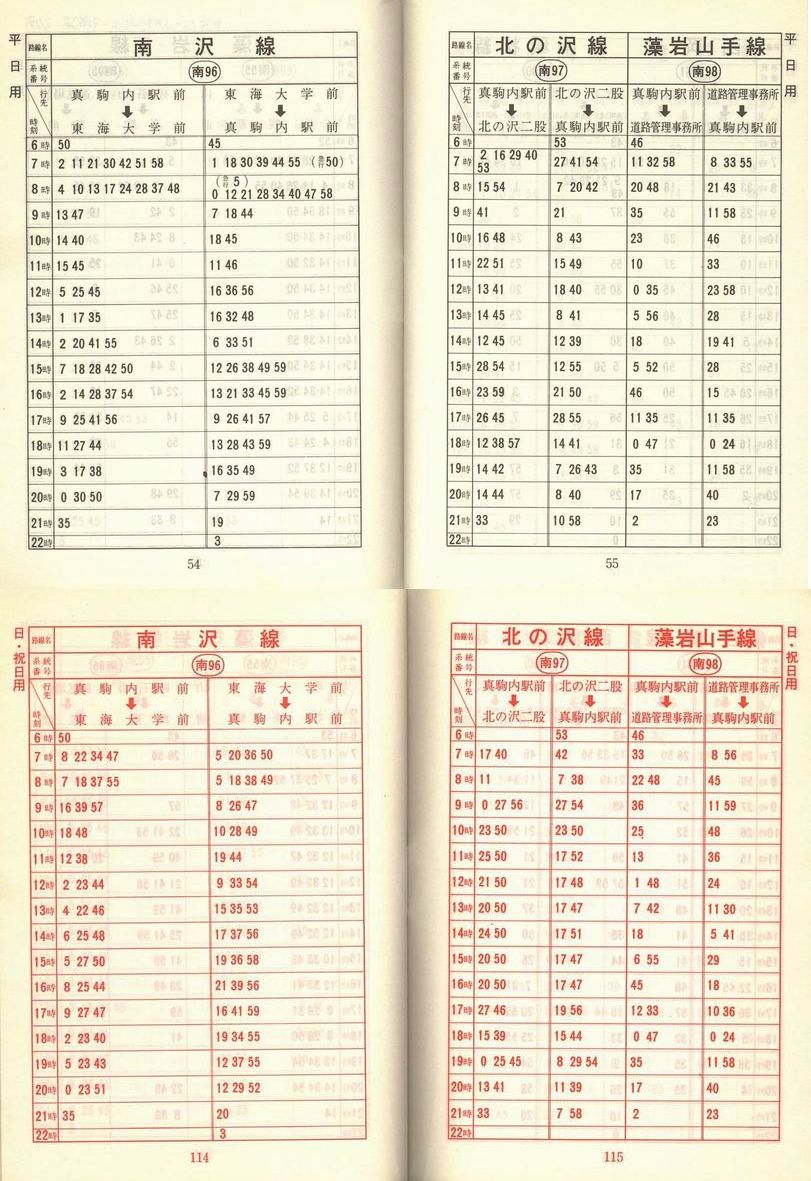 平日用
路線名 南沢線
系統番号 南96
行先 真駒内駅前 東海大学前
時刻 東海大学前 真駒内駅前
6時 50 45
7時 2 11 21 30 42 51 58 1 18 30 39 44 55 (急行50)
8時 4 10 13 17 24 28 37 48 (急行5) 0 12 21 28 34 40 47 58
9時 13 47 7 18 44
10時 14 40 18 45
11時 15 45 11 46
12時 5 25 45 16 36 56
13時 1 17 35 16 32 48
14時 2 20 41 55 6 33 51
15時 7 18 28 42 50 12 26 38 49 59
16時 2 14 28 37 54 13 21 33 45 59
17時 9 25 41 56 9 26 41 57
18時 11 27 44 13 28 43 59
19時 3 17 38 16 35 49
20時 0 30 50 7 29 59
21時 35 19
22時 3
54
平日用
路線名 北の沢線 藻岩山手線
系統番号 南97 南98
行先 真駒内駅前 北の沢二股 真駒内駅前 道路管理事務所
時刻 北の沢二股 真駒内駅前 道路管理事務所 真駒内駅前
6時 53 46
7時 2 16 29 40 53 27 41 54 11 32 58 8 33 55
8時 15 54 7 20 42 20 48 21 43
9時 41 21 35 11 58
10時 16 48 8 43 23 46
11時 22 51 15 49 10 33
12時 13 41 18 40 0 35 23 58
13時 14 45 8 41 5 56 28
14時 12 45 12 39 18 19 41
15時 28 54 12 55 5 52 28
16時 23 59 21 50 46 15
17時 26 45 28 55 11 35 11 35
18時 12 38 57 14 41 0 47 0 24
19時 14 42 7 26 43 35 11 58
20時 14 44 8 40 17 40
21時 33 10 58 2 23
22時
55
日・祝日用
路線名 南沢線
系統番号 南96
行先 真駒内駅前 東海大学前
時刻 東海大学前 真駒内駅前
6時 50
7時 8 22 34 47 5 20 36 50
8時 7 18 37 55 5 18 38 49
9時 16 39 57 8 26 47
10時 18 48 10 28 49
11時 12 38 19 44
12時 2 23 44 9 33 54
13時 4 22 46 15 35 53
14時 6 25 48 17 37 56
15時 5 27 50 19 36 58
16時 8 25 44 21 39 56
17時 9 27 47 16 41 59
18時 2 23 40 19 34 55
19時 5 23 43 12 37 55
20時 0 23 51 12 29 52
21時 35 20
22時 3
114
日・祝日用
路線名 北の沢線 藻岩山手線
系統番号 南97 南98
行先 真駒内駅前 北の沢二股 真駒内駅前 道路管理事務所
時刻 北の沢二股 真駒内駅前 道路管理事務所 真駒内駅前
6時 53 46
7時 17 40 42 33 8 56
8時 11 7 38 22 48 45
9時 0 27 56 27 54 36 11 59
10時 23 50 23 50 25 48
11時 25 50 17 52 13 36
12時 21 50 17 48 1 48 24
13時 20 50 17 47 7 42 11 30
14時 24 50 17 51 18 5 41
15時 20 50 17 47 6 55 29
16時 20 50 17 47 45 18
17時 27 46 19 56 12 33 10 36
18時 15 39 15 44 0 47 0 24
19時 0 25 45 8 29 54 35 11 58
20時 13 41 11 39 17 40
21時 33 7 58 2 23
22時
115